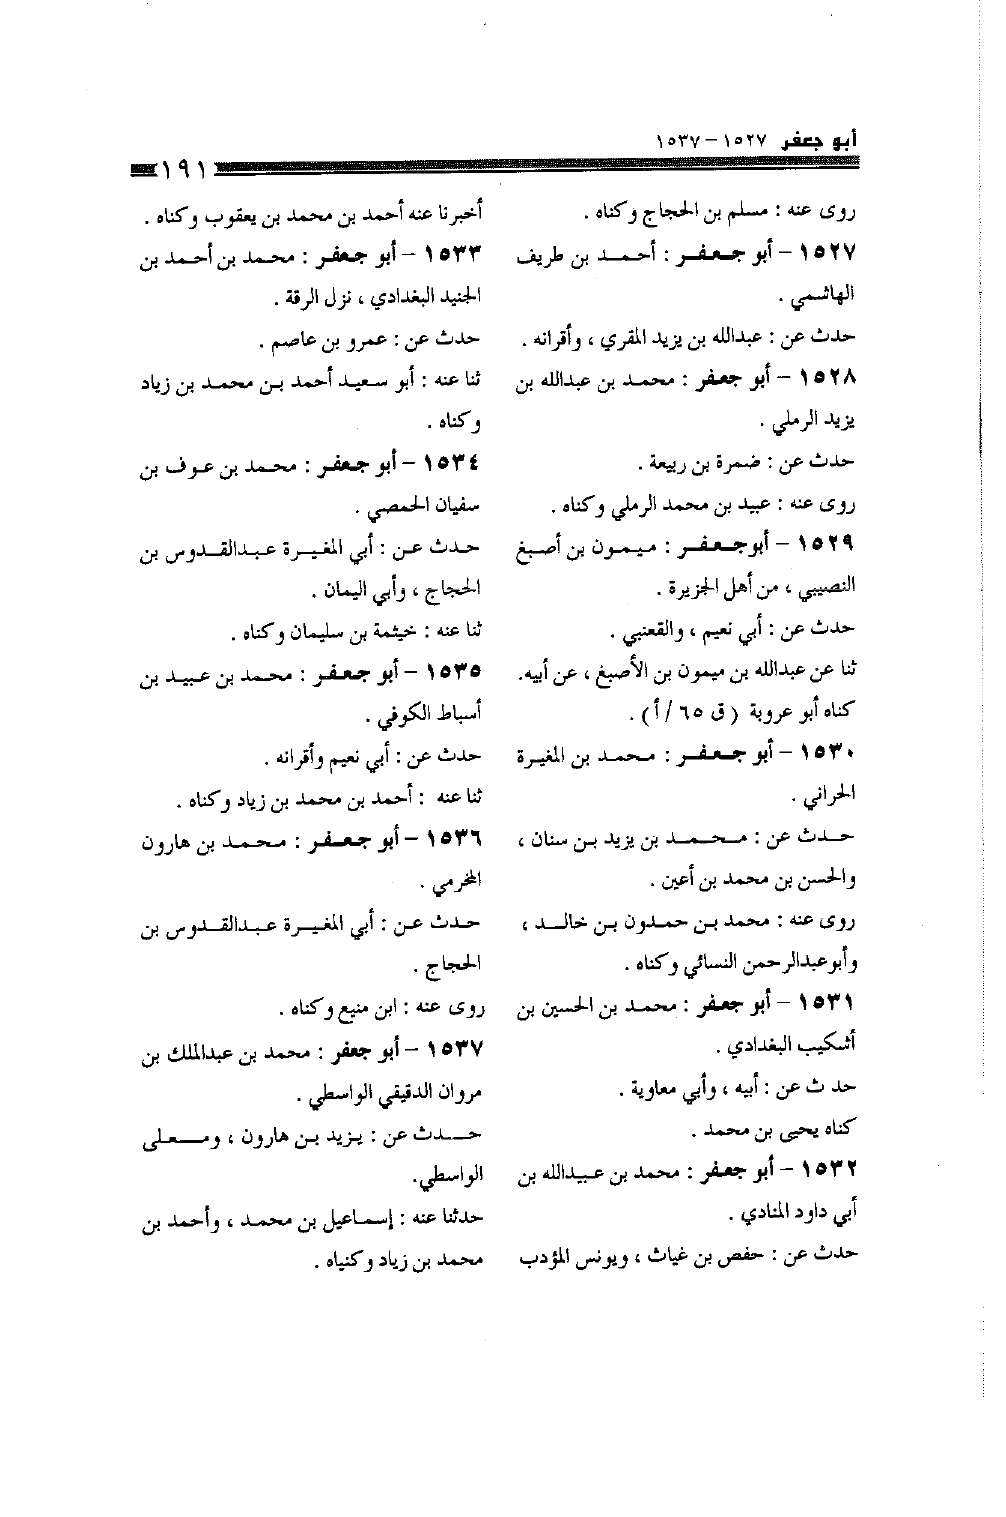 أبو جعفر ١٥٢٧ – ١٥٣٧
١٩١
روى عنه : مسلم بن الحجاج وكناه .
١٥٢٧ – أبو جعفر : أحمد بن طريف
الهاشمي .
حدث عن : عبدالله بن يزيد المقري ، وأقرانه .
١٥٢٨ – أبو جعفر : محمد بن عبدالله بن
يزيد الرملي .
حدث عن : ضمرة بن ربيعة .
روى عنه : عبيد بن محمد الرملي وكناه .
١٥٢٩ – أبوجعفر : ميمون بن أصبغ
النصيبي ، من أهل الجزيرة .
حدث عن : أبي نعيم ، والقعنبي .
ثنا عن عبدالله بن ميمون بن الأصبغ ، عن أبيه.
كناه أبو عروبة ( ق ٦٥ /أ ) .
١٥٣٠ – أبو جعفر : محمد بن المغيرة
الحراني .
حدث عن : محمد بن يزيد بن سنان ،
والحسن بن محمد بن أعين .
روى عنه : محمد بن حمدون بن خالد ،
وأبوعبدالرحمن النسائي وكناه .
١٥٣١ – أبو جعفر : محمد بن الحسين بن
أشكيب البغدادي .
حد ث عن : أبيه ، وأبي معاوية .
كناه يحيى بن محمد .
١٥٣٢ – أبو جعفر : محمد بن عبيدالله بن
أبي داود المنادي .
حدث عن : حفص بن غياث ، ويونس المؤدب
أخبرنا عنه أحمد بن محمد بن يعقوب وكناه .
١٥٣٣ – أبو جعفر : محمد بن أحمد بن
الجنيد البغدادي ، نزل الرقة .
حدث عن : عمرو بن عاصم .
ثنا عنه : أبو سعيد أحمد بن محمد بن زياد
وكناه .
١٥٣٤ – أبو جعفر : محمد بن عوف بن
سفيان الحمصي .
حدث عن : أبي المغيرة عبدالقدوس بن
الحجاج ، وأبي اليمان .
ثنا عنه : خيثمة بن سليمان وكناه .
١٥٣٥ – أبو جعفر : محمد بن عبيد بن
أسباط الكوفي .
حدث عن : أبي نعيم وأقرانه .
ثنا عنه : أحمد بن محمد بن زياد وكناه .
١٥٣٦ – أبو جعفر : محمد بن هارون
المخرمي .
حدث عن : أبي المغيرة عبدالقدوس بن
الحجاج .
روى عنه : ابن منيع وكناه .
١٥٣٧ – أبو جعفر : محمد بن عبدالملك بن
مروان الدقيقي الواسطي .
حدث عن : يزيد بن هارون ، ومعلى
الواسطي.
حدثنا عنه : إسماعيل بن محمد ، وأحمد بن
محمد بن زياد وكنياه .